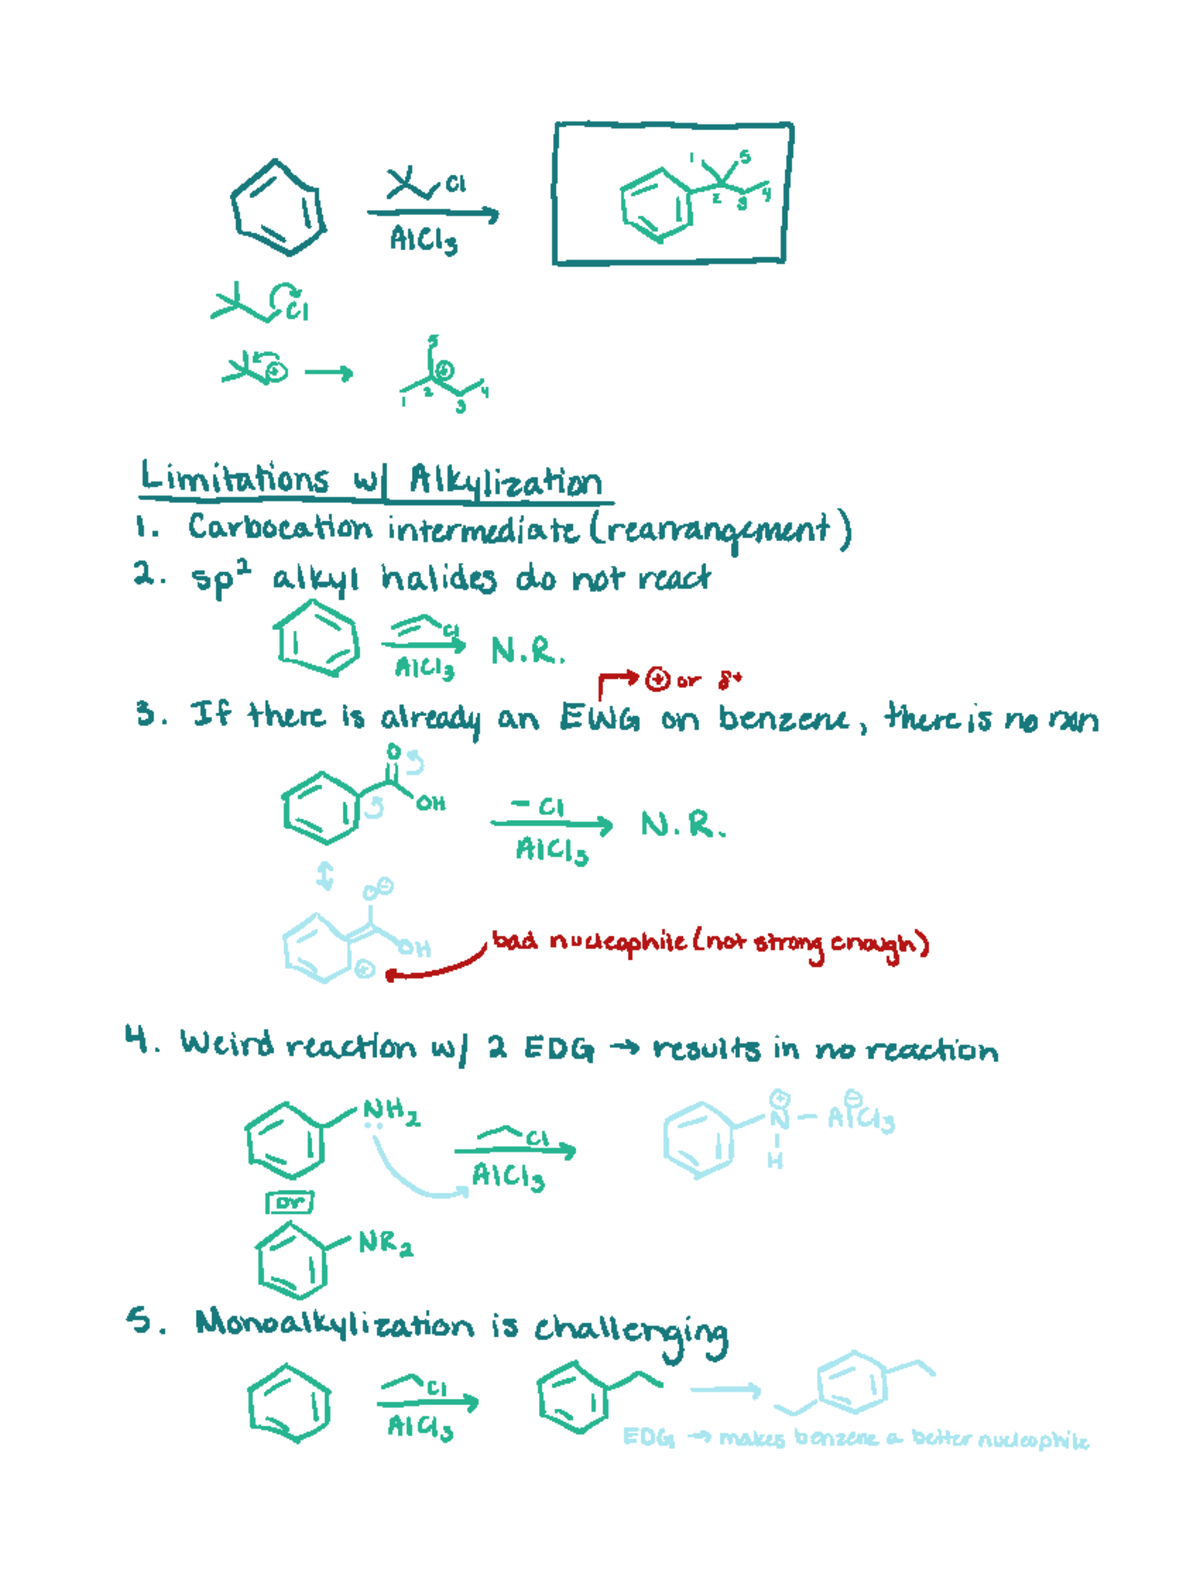 Cl
AlCl3
1 5
2 3 4
Cl
+
5
+
1 2 3 4
Limitations w/ Alkylization
1. Carbocation intermediate (rearrangement)
2. sp² alkyl halides do not react
Cl
AlCl3 N.R.
⊕ or δ+
3. If there is already an EWG on benzene, there is no rxn
O
OH
— Cl
AlCl3 N.R.
O⊖
OH
⊕
bad nucleophile (not strong enough)
4. Weird reaction w/ 2 EDG → results in no reaction
NH2
Cl
AlCl3
⊕ ⊖
N — AlCl3
H
or
NR2
5. Monoalkylization is challenging
Cl
AlCl3
EDG → makes benzene a better nucleophile